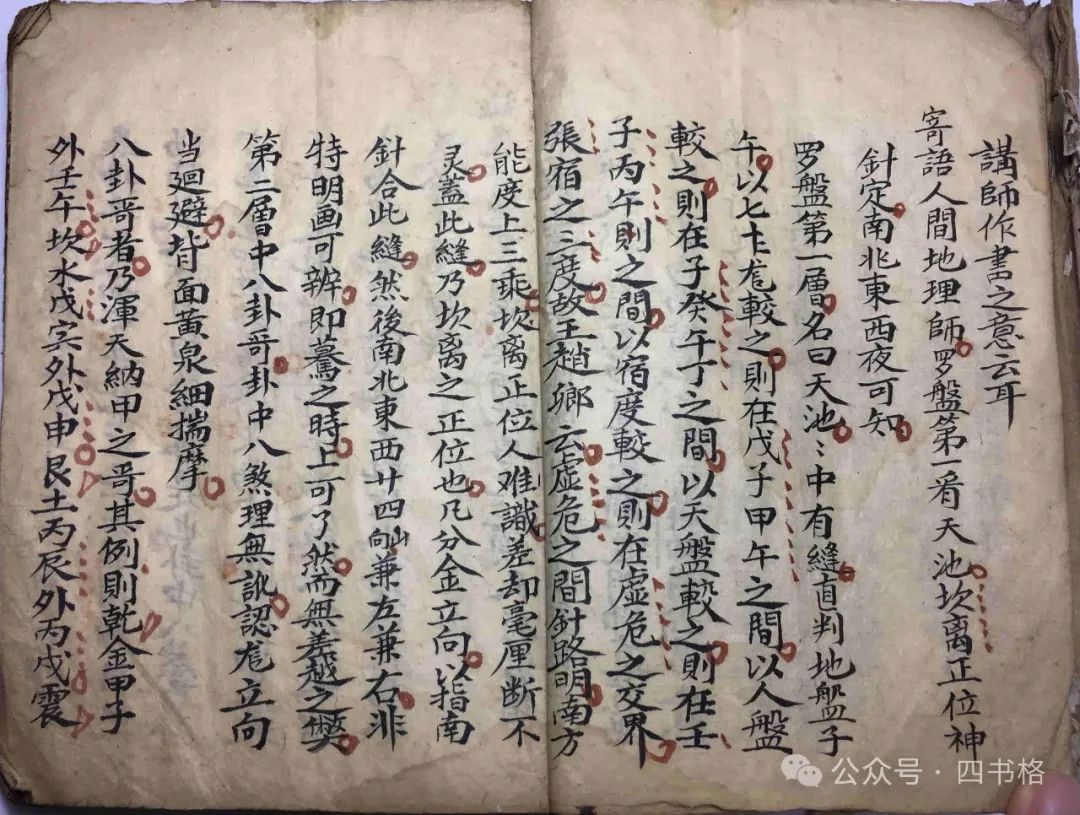 講師作書之意云耳
寄語人間地理師罗盤第一看天池坎离正位神
針定南北東西夜可知
罗盤第一層名曰天池⺀中有縫直判地盤子
午以七十龙較之則在戊子甲午之間以人盤
較之則在子癸午丁之間以天盤較之則在壬
子丙午則之間以宿度較之則在虚危之交界
張宿之三度故王趙鄉云虚危之間針路明南方
能度上三乘坎离正位人难識差却毫厘断不
灵蓋此縫乃坎离之正位也凡分金立向以指南
針合此縫然後南北東西廿四山向兼左兼右非
特明画可辨即驀之時上可了然而無差越之弊
第二層中八卦哥卦中八煞理無訛認龙立向
当廻避背面黃泉細揣摩
八卦哥者乃渾天納甲之哥其例則乾金甲子
外壬午坎水戊寅外戊申艮土丙辰外丙戌震
公众号·四书格